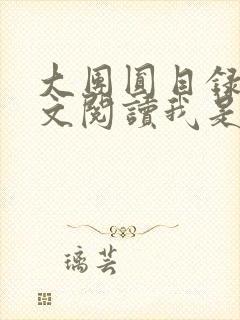 大團圓目錄
文閱讀我是
璃芸